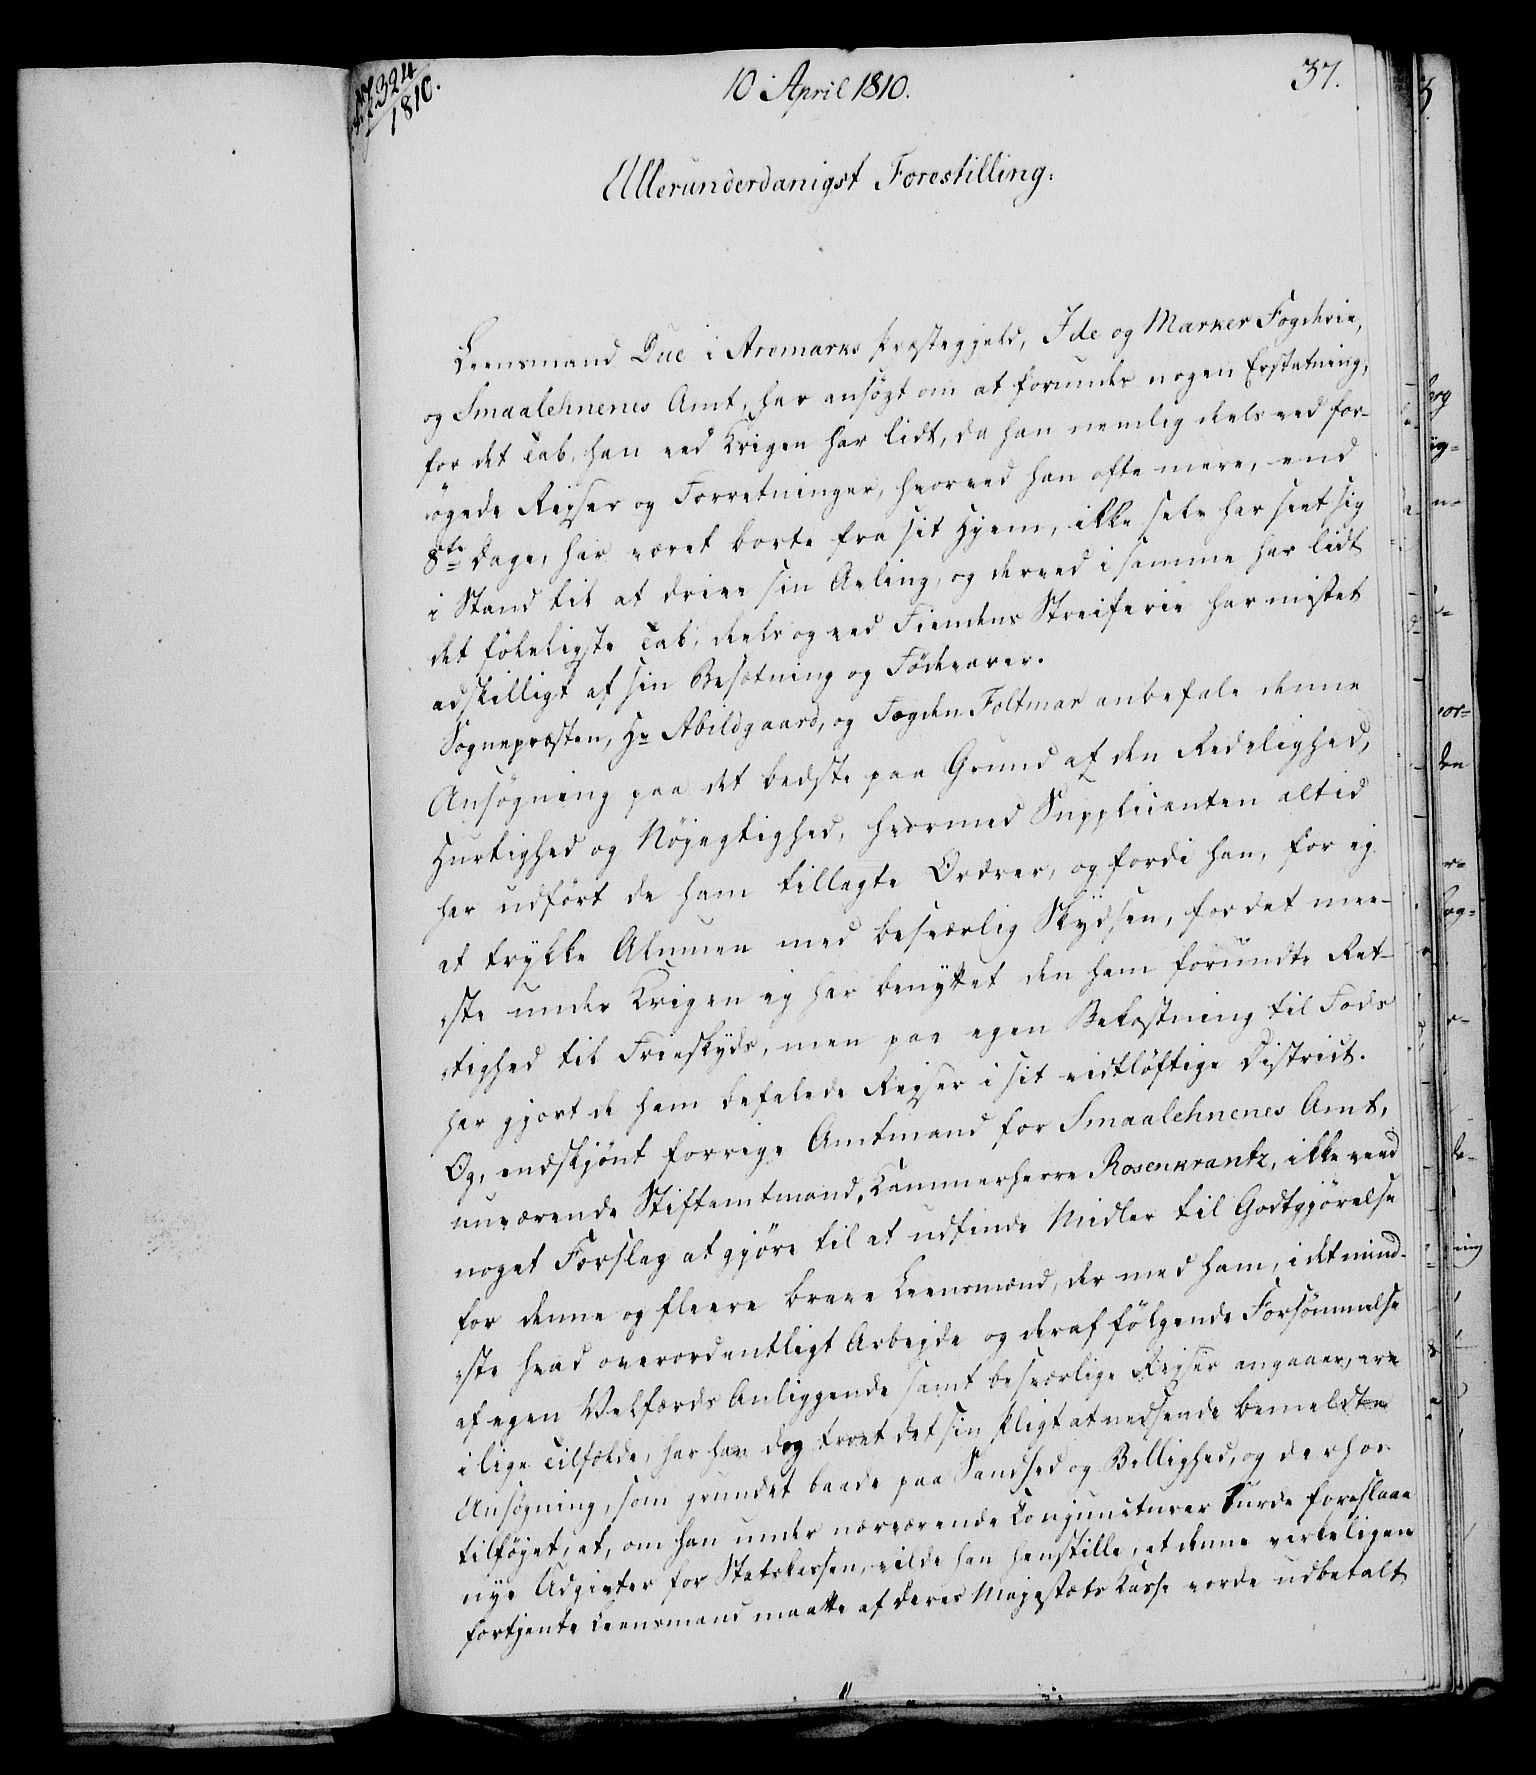 No 324
1810.
10 April 1810.
37.
Allerunderdanigst Forestilling.
Leensmand Due i Aremarks Præstegjeld, Ide og Marker Fogderie,
og Smaalehnenes Amt, har ansøgt om at forundes nogen Erstatning,
for det Tab, han ved Krigen har lidt, da han nemlig deels ved for-
øgede Rejser og Forretninger, hvorved han ofte mere, end
8te Dage, har været borte fra sit Hjem, ikke selv har seet sig
i Stand til at drive sin Avling, og derved i samme har lidt
det føleligste Tab, deels og ved Fiendens Streiferie har mistet
adskilligt af sin Besætning og Fødevarer.
Sognepræsten, Hr Abildgaard, og Fogden Foltmar anbefale denne
Ansøgning paa det bedste paa Grund af den Redelighed,
Hurtighed og Nøjagtighed, hvormed Supplicanten altid
har udført de ham tillagte Ordrer, og fordi han, for ej
at trykke Almuen med besværlig Skydsen, for det mee-
ste under Krigen ej har benyttet den ham forundte Ret-
tighed til Frieskyds, men paa egen Bekostning til Fods
har gjort de ham befalede Rejser i sit vidtløftige District.
Og, endskjønt forrige Amtmand for Smaalehnenes Amt,
nuværende Stiftamtmand, Kammerherre Rosenkrantz, ikke veed
noget Forslag at gjøre til at udfinde Midler til Godtgjørelse
for denne og fleere brave Leensmænd, der med ham, i det mind-
ste hvad overordentligt Arbejde og deraf følgende Forsømmelse
af egen Velfærds Anliggende samt besværlige Rejser angaaer, ere
i lige Tilfælde, har han dog troet det sin Pligt at nedsende bemeldte
Ansøgning, som grundet baade paa Sandhed og Billighed, og derhos
tilføjet, at, om han under nærværende Conjuncturer turde foreslaae
nye Udgivter for Statskassen, vilde han henstille, at denne virkeligen
fortjente Leensmand maatte af Deres Majestæts Kasse vorde udbetalt